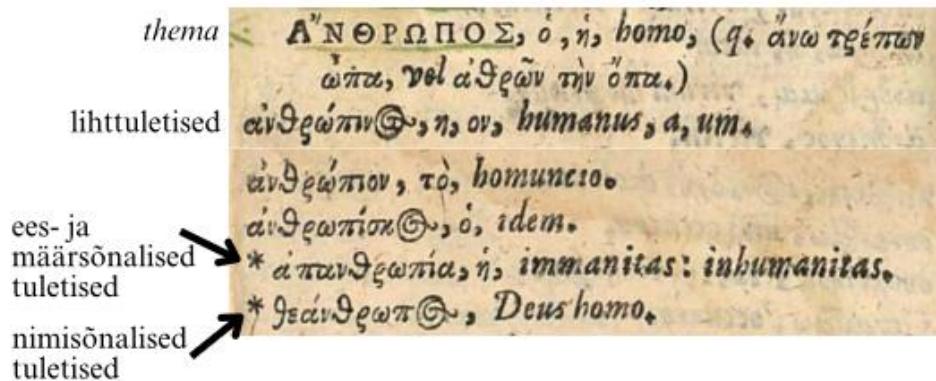 thema
ἌΝΘΡΩΠΟΣ, ὁ, ἡ, homo, (q. ἄνω τρέπων
ὦπα, vel ἀθρῶν τὴν ὄπα.)
lihttuletised
ἀνθρώπινος, η, ον, humanus, a, um.
ἀνθρώπιον, τὸ, homuncio.
ἀνθρωπίσκος, ὁ, idem.
ees- ja
määrsõnalised
tuletised
* ἀπανθρωπία, ἡ, immanitas: inhumanitas.
* θεάνθρωπος, Deus homo.
nimisõnalised
tuletised